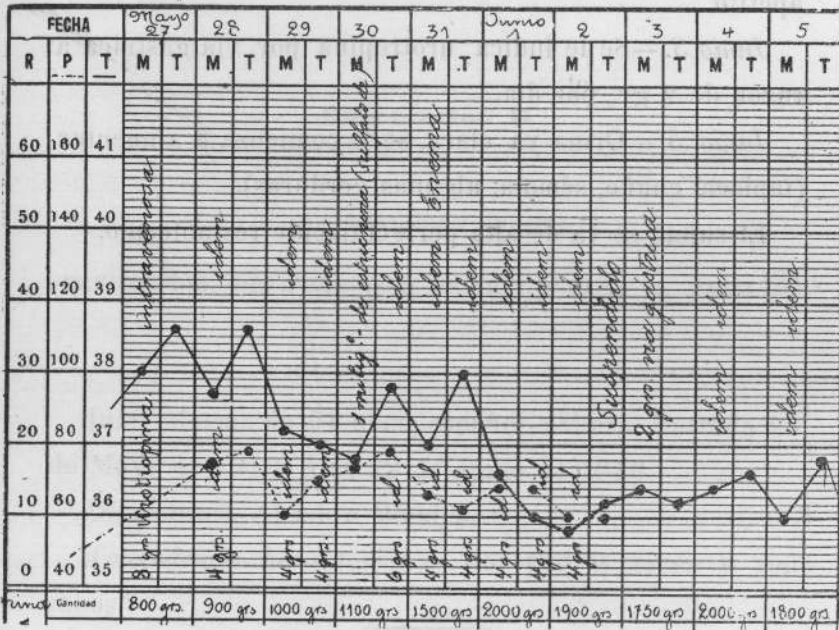 FECHA Mayo 27 28 29 30 31 Junio 1 2 3 4 5
R P T M T M T M T M T M T M T M T M T M T M T
60 160 41
50 140 40
40 120 39
30 100 38
20 80 37
10 60 36
0 40 35
3 grs. Urotropina intravenosa
4 grs. idem idem
4 grs idem idem
4 grs. idem idem
1 miligº de estricnina (sulfato de)
6 grs id idem
4 grs id idem Enema
4 grs id idem
4 grs id idem
4 grs id idem
4 grs id idem
Suspendido
2 grs. via gástrica
idem idem
idem idem
Cantidad 800 grs. 900 grs 1000 grs 1100 grs 1500 grs 2000 grs 1900 grs 1750 grs 2000 grs 1800 grs